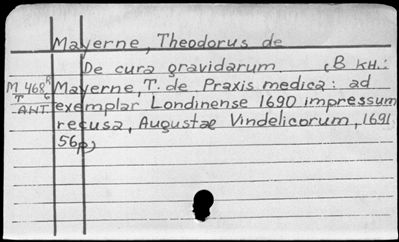 Mayerne, Theodorus de
De cura gravidarum (B KH.:
M 468 R Mayerne, T. de Praxis medica: ad
T G
ANT exemplar Londinense 1690 impressum
recusa, Augustae Vindelicorum, 1691
56p)